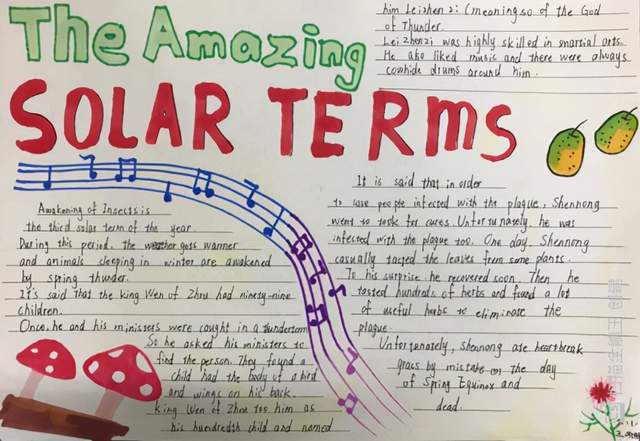 The Amazing
SOLAR TERMS
Awakening of Insects is
the third solar term of the year.
During this period, the weather gets warmer
and animals sleeping in winter are awakened
by spring thunder.
It's said that the king Wen of Zhou had ninety-nine
children.
Once, he and his ministers were caught in a
So he asked his ministers to
find the person. They found a
child had the body of a bird
and wings on his back.
King Wen of Zhou too him as
his hundredth child and named
him Leizhenzi: (meaning so of the God
of Thunder.
Leizhenzi was highly skilled in martial arts.
He also liked music and there were always
cowhide drums around him.
It is said that in order
to save people infected with the plague, Shennong
went to look for cures. Unfortunately, he was
infected with the plague too. One day, Shennong
casually tasted the leaves from some plants.
To his surprise, he recovered soon. Then he
tested hundreds of herbs and found a lot
of useful herbs to eliminate the
plague.
Unfortunately, Shennong ate heartbreak
grass by mistake on the day
of Spring Equinox and
dead.